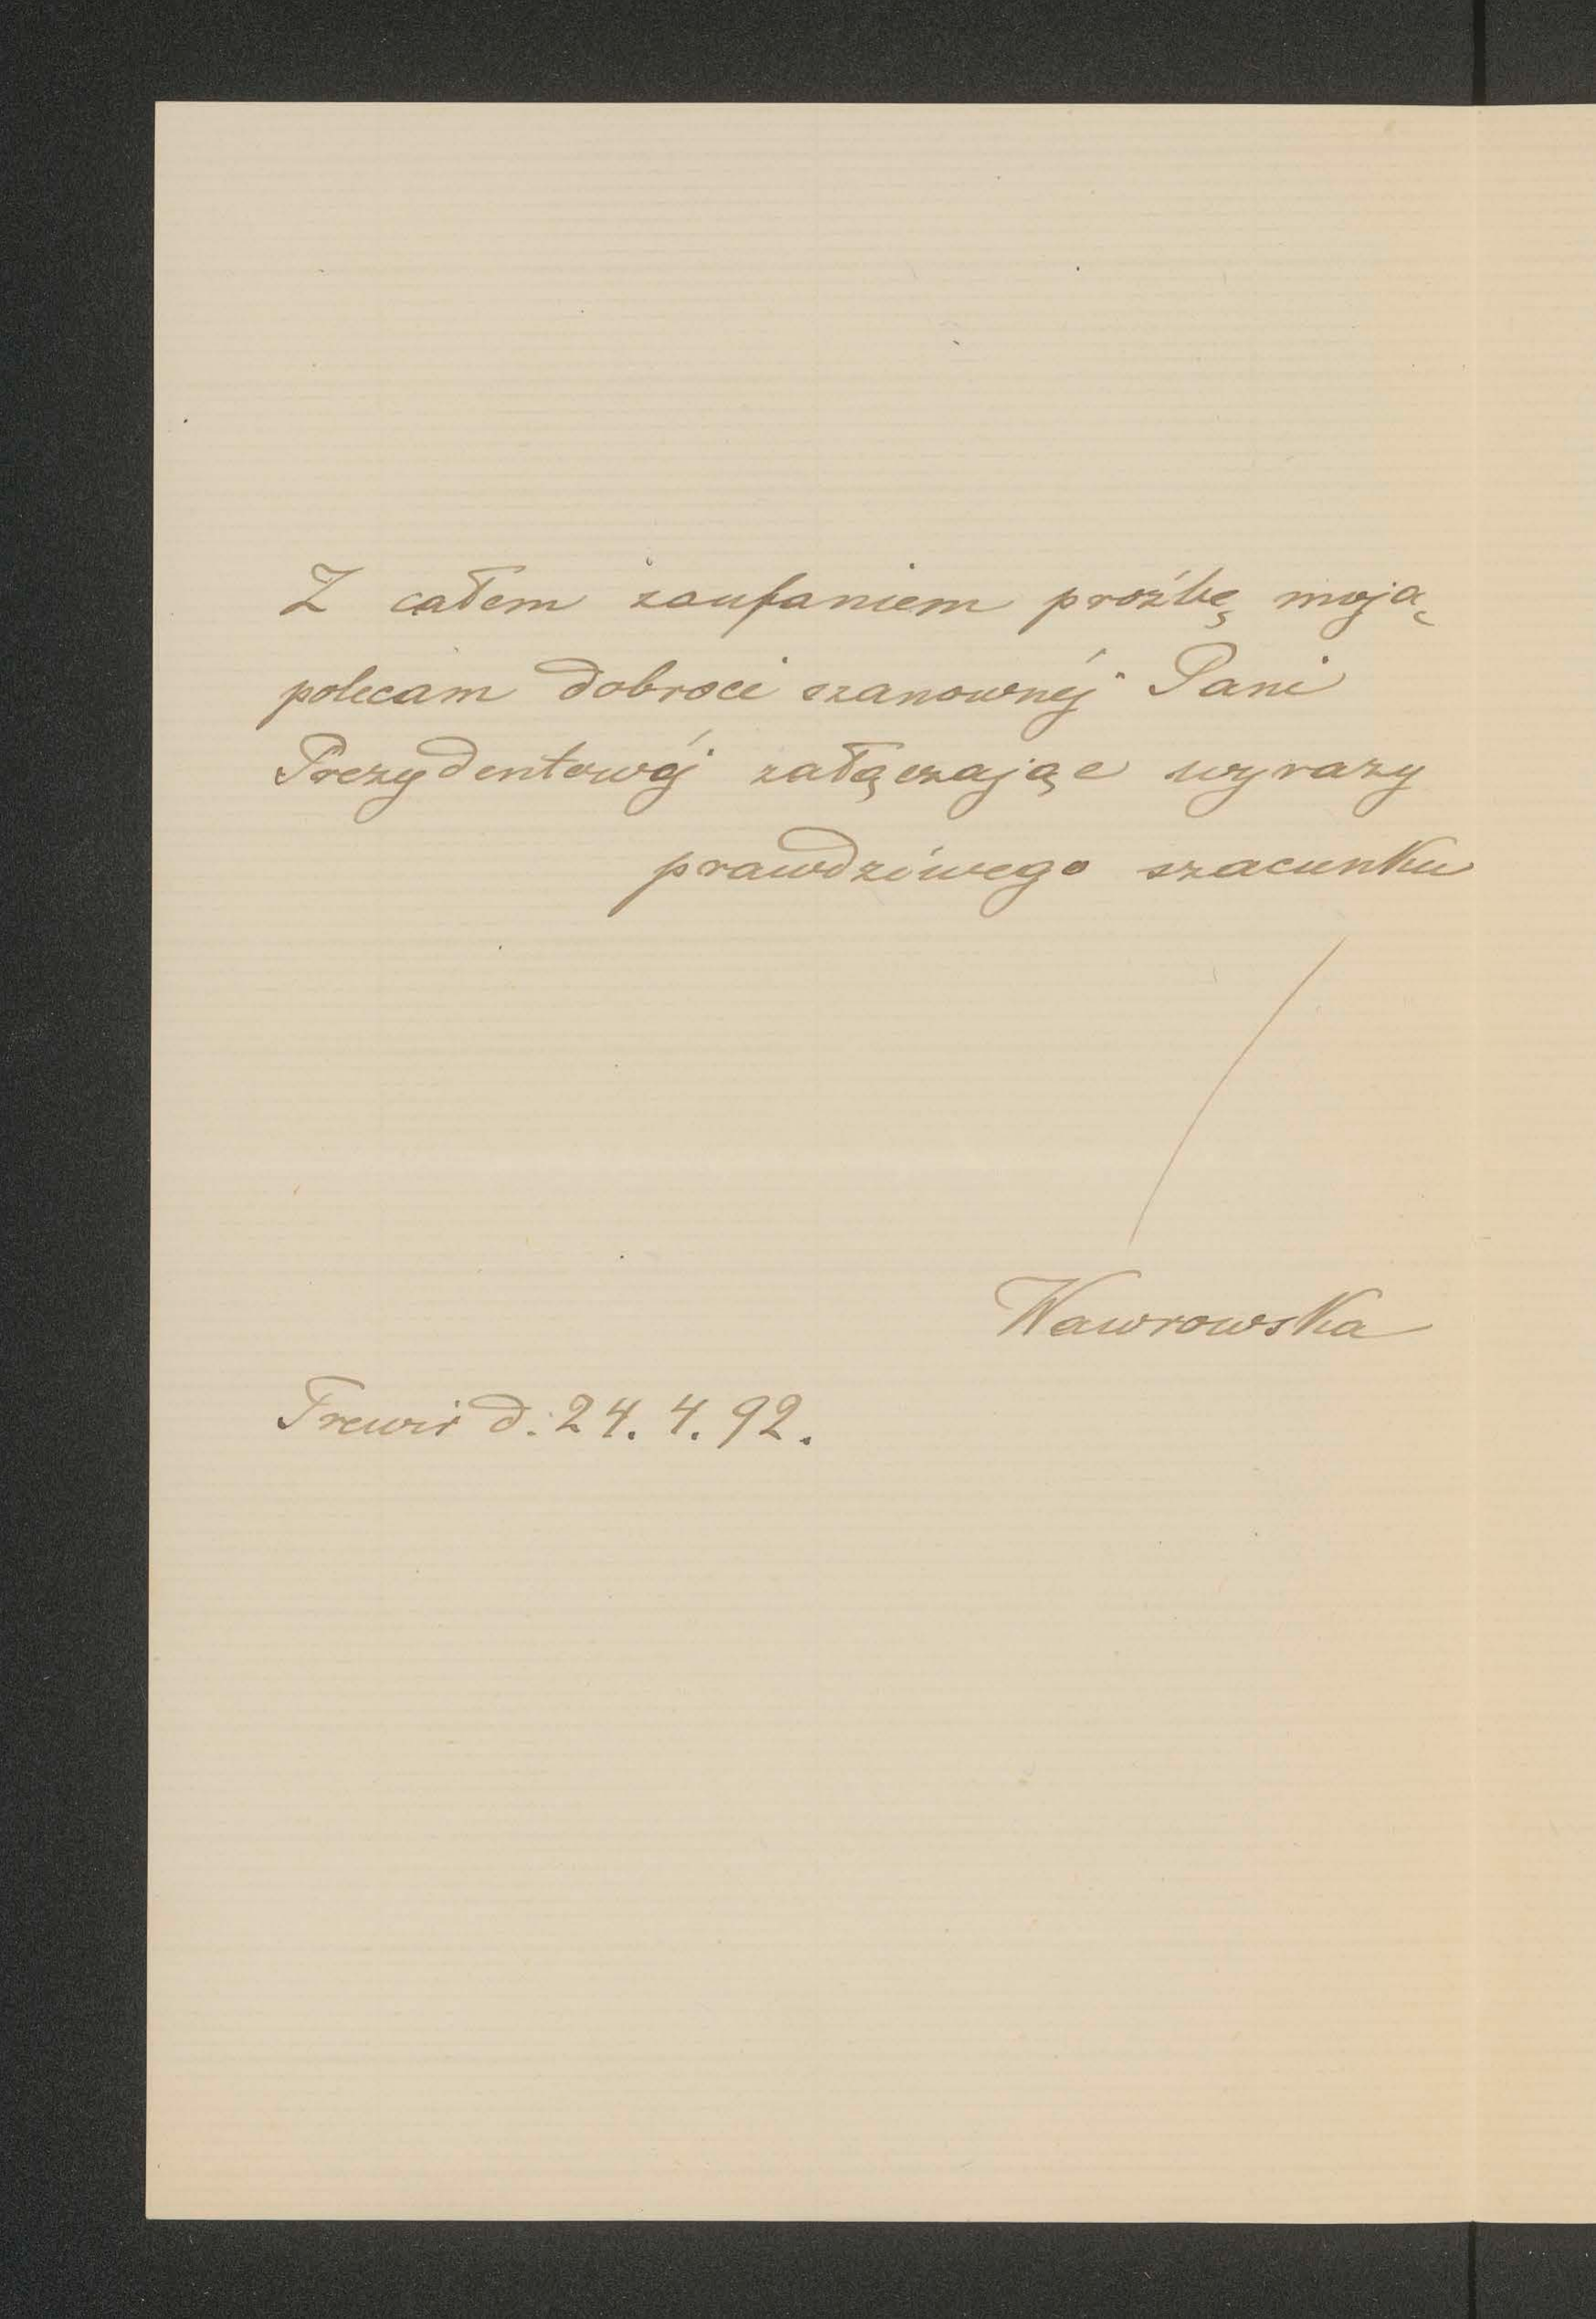 Z całem zaufaniem prożbę moją
polecam dobroci szanownéj Pani
Prezydentowéj załączając wyrazy
prawdziwego szacunku
Wawrowska
d. 24. 4. 92.